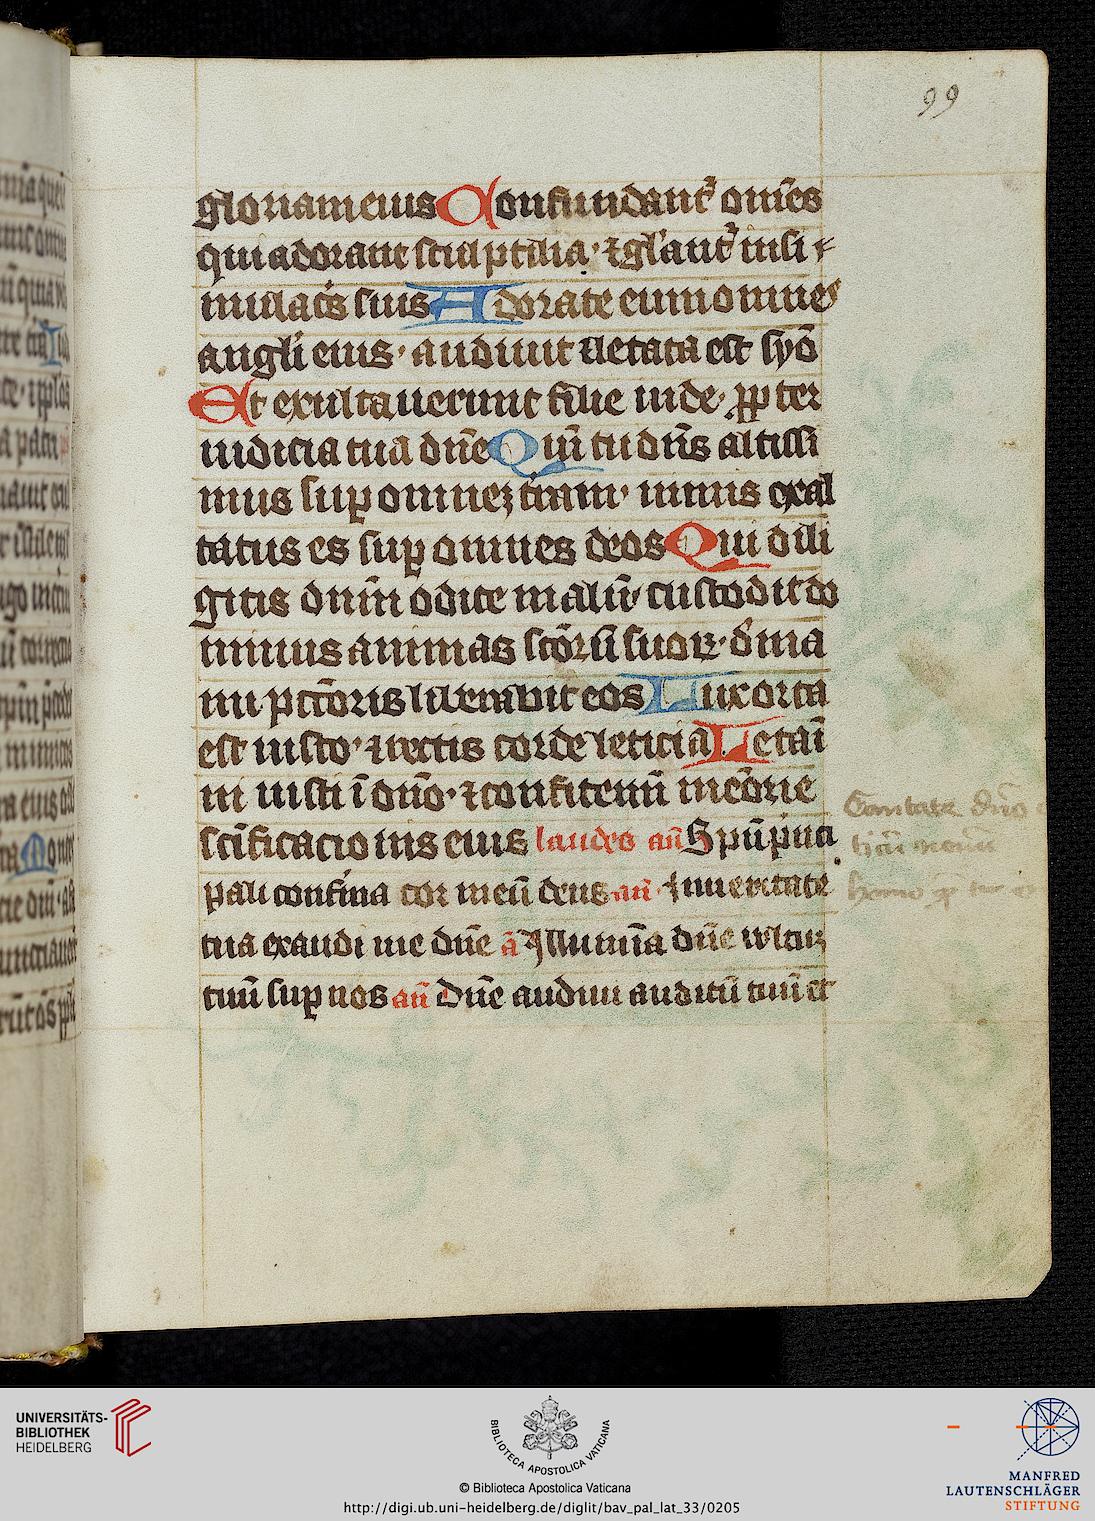 99
gloriam eius Confundant᷑ om̄es
qui adorant sculptilia · ⁊ gl'ant᷑ in si
mulac̄s suis Adorate eum omnes
angl̄i eius · audiuit ⁊ letata est syō
Et exultauerunt filie iude · ꝓpter
iudicia tua dn̄e Qm̄ tu dn̄s altissi
mus suꝑ omnez t̄ram · nimis exal
tatus es suꝑ omnes deos Qui dili
gitis dn̄m odite malū · custodit do
minus animas sc̄orū suoꝝ · d̄ ma
nu pc̄c̄oris liberabit eos Lux orta
est iusto · ⁊ rectis corde leticia Letam̄
ni iusti ī dn̄o · ⁊ confitem̄ mēorie
sc̄ificacionis eius laudes an̄ Spū pnci
pali confirma cor meū deus an̄ In ueritate
tua exaudi me dn̄e ā Illumina dn̄e vltuz
tuū suꝑ nos an̄ Dn̄e audiui auditū tuū et
Cantate dn̄o
homo
UNIVERSITÄTS-
BIBLIOTHEK
HEIDELBERG
BIBLIOTECA APOSTOLICA VATICANA
© Biblioteca Apostolica Vaticana
http://digi.ub.uni-heidelberg.de/diglit/bav_pal_lat_33/0205
MANFRED
LAUTENSCHLÄGER
STIFTUNG